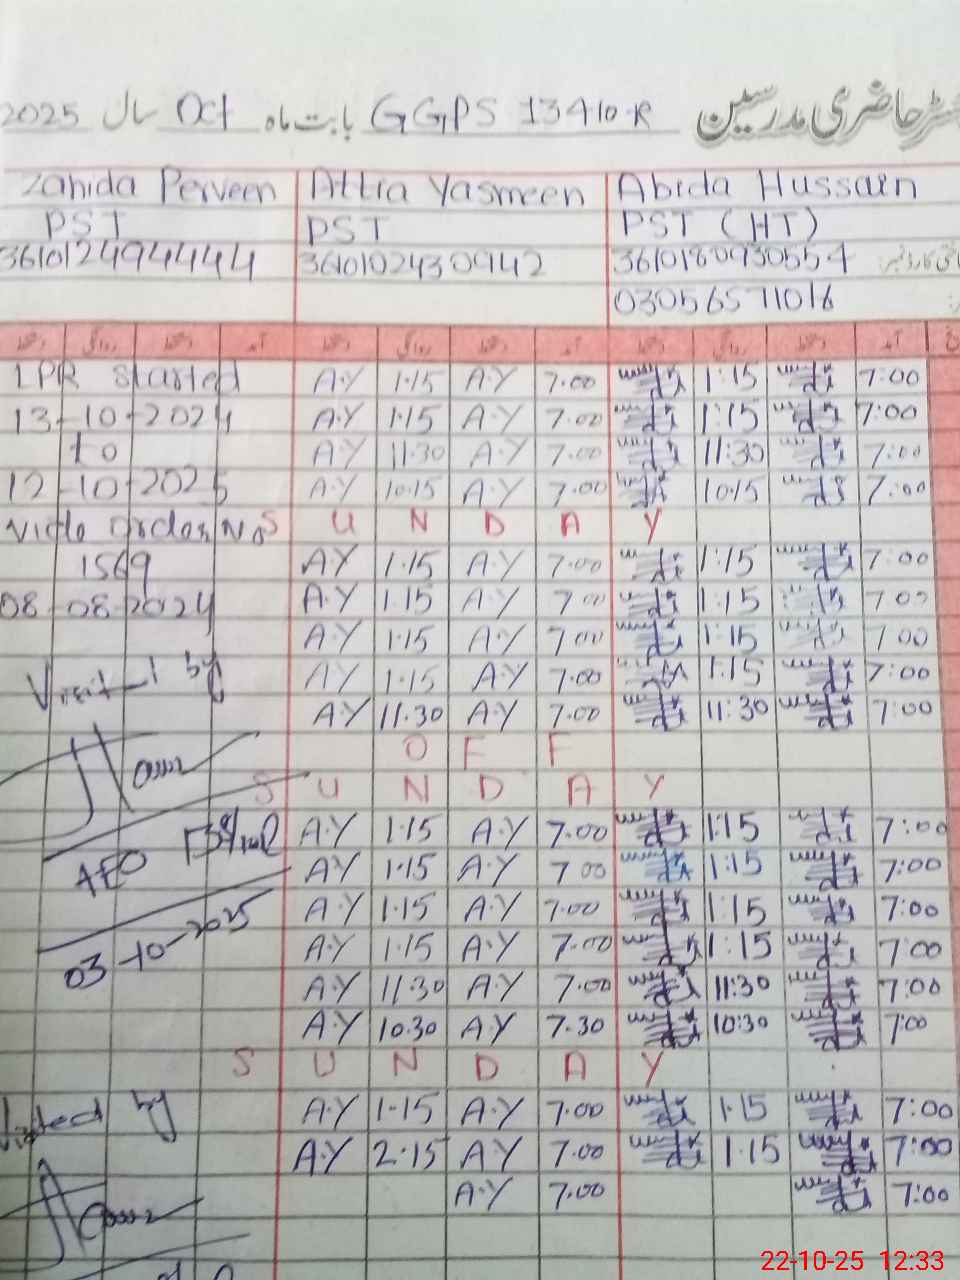 رجسٹر حاضری مدرسین GGPS 134/10-R بابت ماہ Oct سال 2025
Zahida Perveen Attia Yasmeen Abida Hussain
PST PST PST (HT)
3610124944444 3610102430942 3610180930554
03056571016
آمد دستخط روانگی دستخط آمد دستخط روانگی دستخط آمد دستخط روانگی دستخط
LPR started A.Y 1.15 A.Y 7.00 1:15 7:00
13-10-2024 A.Y 1.15 A.Y 7.00 1:15 7:00
to A.Y 11.30 A.Y 7.00 11:30 7:00
12-10-2025 A.Y 10.15 A.Y 7.00 10:15 7:00
Vide order No S U N D A Y
1569 A.Y 1.15 A.Y 7.00 1:15 7:00
08-08-2024 A.Y 1.15 A.Y 7.00 1:15 7 00
A.Y 1.15 A.Y 7.00 1:15 7 00
Visit-1 by A.Y 1.15 A.Y 7.00 1:15 7:00
A.Y 11.30 A.Y 7.00 11:30 7:00
O F F
S U N D A Y
A.Y 1.15 A.Y 7.00 1:15 7:00
AEO A.Y 1.15 A.Y 7 00 1:15 7:00
A.Y 1.15 A.Y 7.00 1:15 7:00
03-10-2025 A.Y 1.15 A.Y 7.00 1:15 7:00
A.Y 11.30 A.Y 7.00 11:30 7:00
A.Y 10.30 A.Y 7.30 10:30 7:00
S U N D A Y
Visited by A.Y 1.15 A.Y 7.00 1.15 7:00
A.Y 2.15 A.Y 7.00 1.15 7:00
A.Y 7.00 7:00
22-10-25 12:33